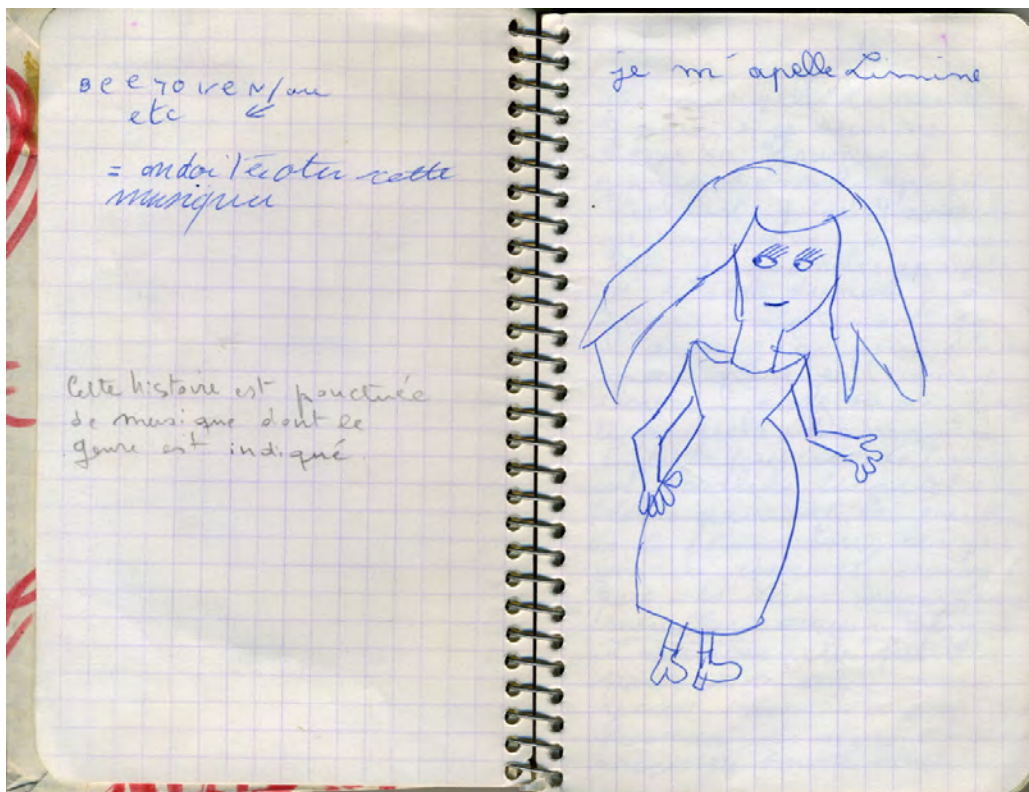 BEETOVEN/ou
etc ↙
= on doi l'écoter cette
musique
Cette histoire est ponctuée
de musique dont le
genre est indiqué.
je m'apelle Limine